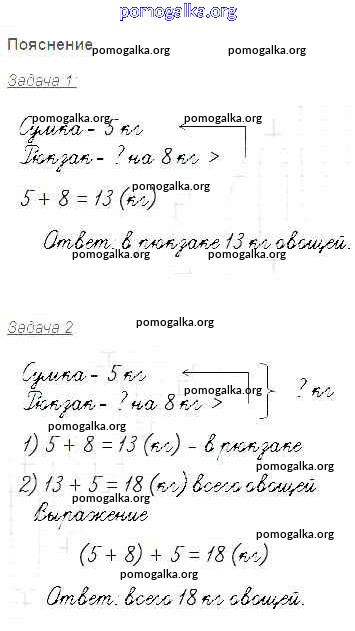 pomogalka.org
Пояснение
pomogalka.org pomogalka.org
Задача 1:
pomogalka.org pomogalka.org
Сумка – 5 кг
Рюкзак – ? на 8 кг >
pomogalka.org
pomogalka.org
5 + 8 = 13 (кг)
Ответ: в рюкзаке 13 кг овощей.
pomogalka.org pomogalka.org
pomogalka.org
Задача 2
pomogalka.org
Сумка – 5 кг
? кг
pomogalka.org
Рюкзак – ? на 8 кг >
pomogalka.org
1) 5 + 8 = 13 (кг) – в рюкзаке
pomogalka.org
2) 13 + 5 = 18 (кг) всего овощей
pomogalka.org
Выражение
pomogalka.org
(5 + 8) + 5 = 18 (кг)
pomogalka.org
Ответ: всего 18 кг овощей.
pomogalka.org